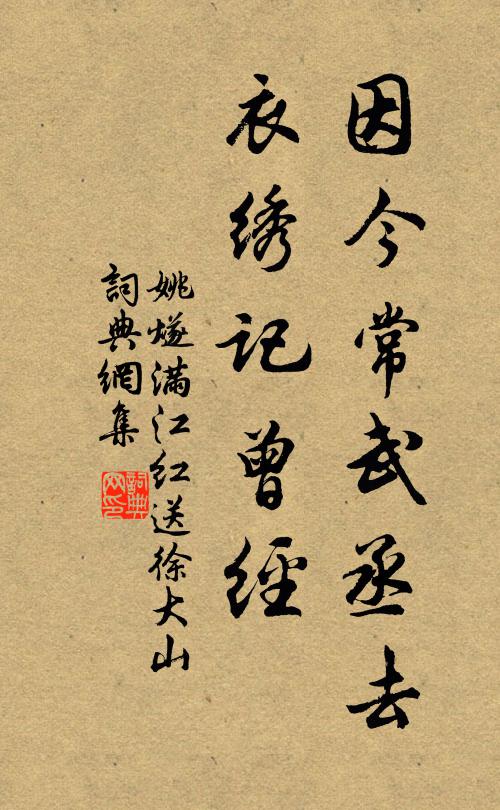 因今常武丞去
衣绣记曾經
姚燧满江红送徐大山
詞典網集
詞典网印